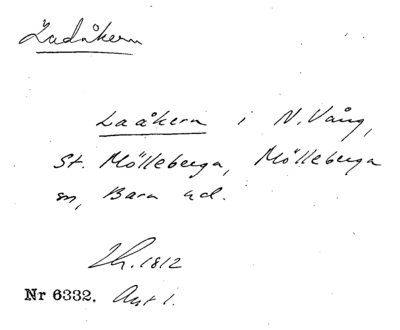 Ladåkern
Laåkern i N. Vång,
St. Mölleberga, Mölleberga
sn, Bara hd.
Lh. 1812
Nr 6332. Akt 1.